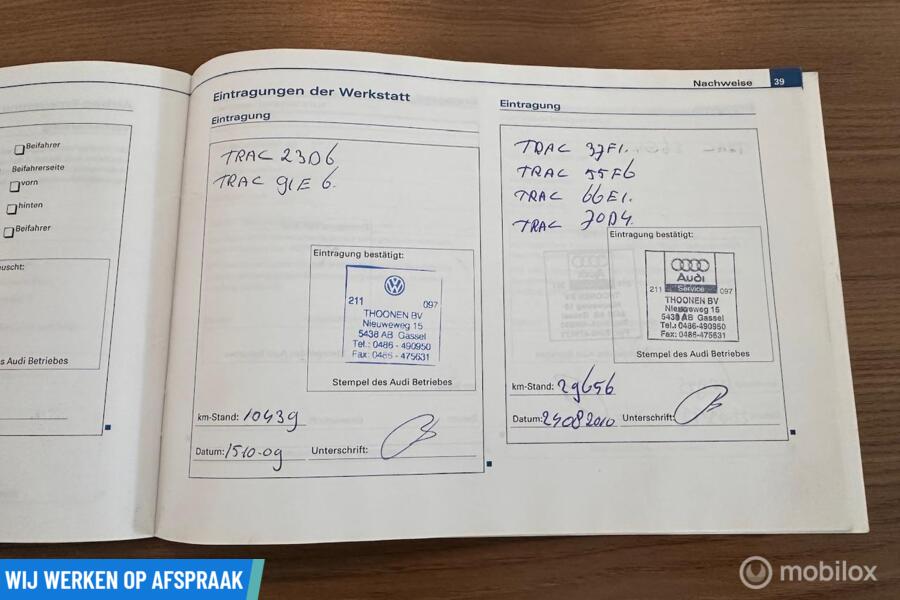 Beifahrer
Beifahrerseite
vorn
hinten
Beifahrer
uscht:
s Audi Betriebes
Nachweise 39
Eintragungen der Werkstatt
Eintragung
TRAC 23D6
TRAC 91E6.
Eintragung bestätigt:
211 097
THOONEN BV
Nieuweweg 15
5438 AB Gassel
Tel.: 0486 - 490950
Fax: 0486 - 475631
Stempel des Audi Betriebes
km-Stand: 10439
Datum: 1510-09 Unterschrift:
Eintragung
TRAC 37F1.
TRAC 55F6
TRAC 66E1.
TRAC 70D4.
Eintragung bestätigt:
Audi
Service
211 097
THOONEN BV
Nieuweweg 15
5438 AB Gassel
Tel.: 0486-490950
Fax: 0486-475631
Stempel des Audi Betriebes
km-Stand: 29656
Datum: 24082010 Unterschrift:
WIJ WERKEN OP AFSPRAAK
mobilox